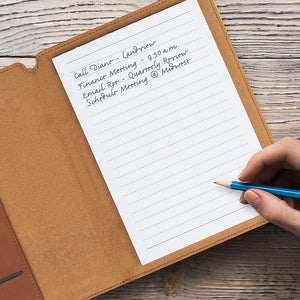 Call Diane - Landview
Finance Meeting - 9:30 a.m.
Email Rpt - Quarterly Review
Schedule Meeting @ Midwest